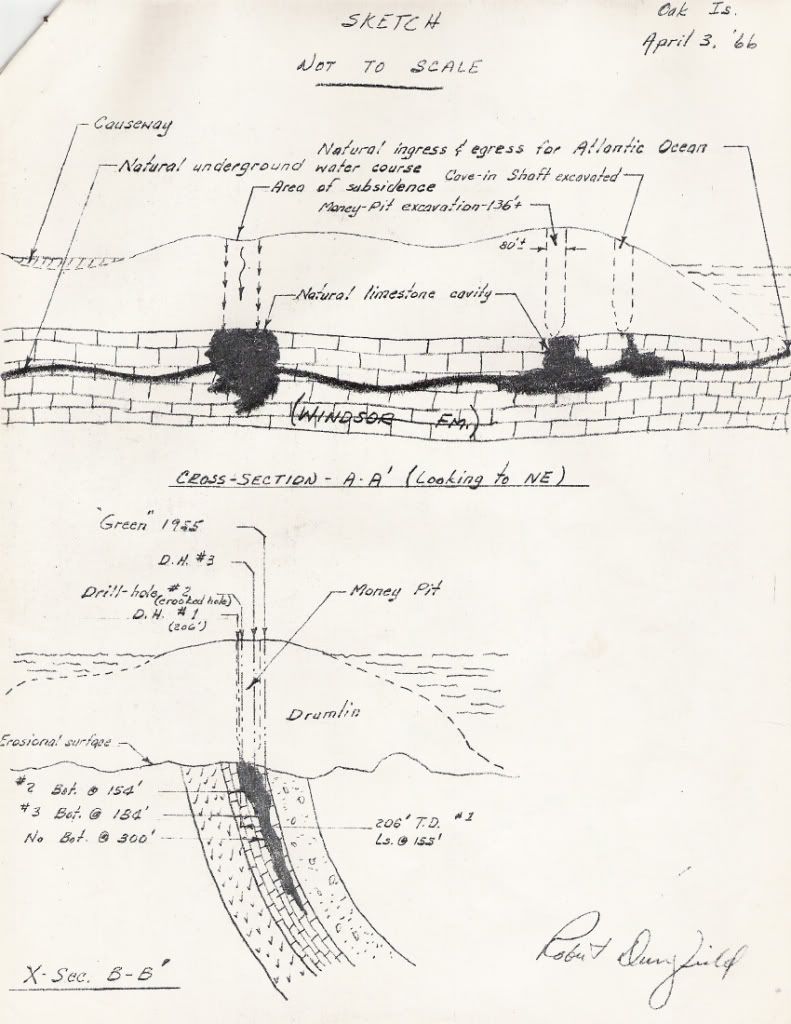 SKETCH
NOT TO SCALE
Oak Is.
April 3, '66
Causeway
Natural ingress & egress for Atlantic Ocean
Natural underground water course
Cave-in Shaft excavated
Area of subsidence
Money-Pit excavation-136'±
80'±
Natural limestone cavity
(WINDSOR FM.)
CROSS-SECTION - A-A' (Looking to NE)
"Green" 1955
D.H. #3
Drill-hole #2
(crooked hole)
D.H. #1
(206')
Money Pit
Drumlin
Erosional surface
#2 Bot. @ 154'
#3 Bot. @ 184'
No Bot. @ 300'
206' T.D. #1
Ls. @ 155'
X-Sec. B-B'
Robert Dunfield